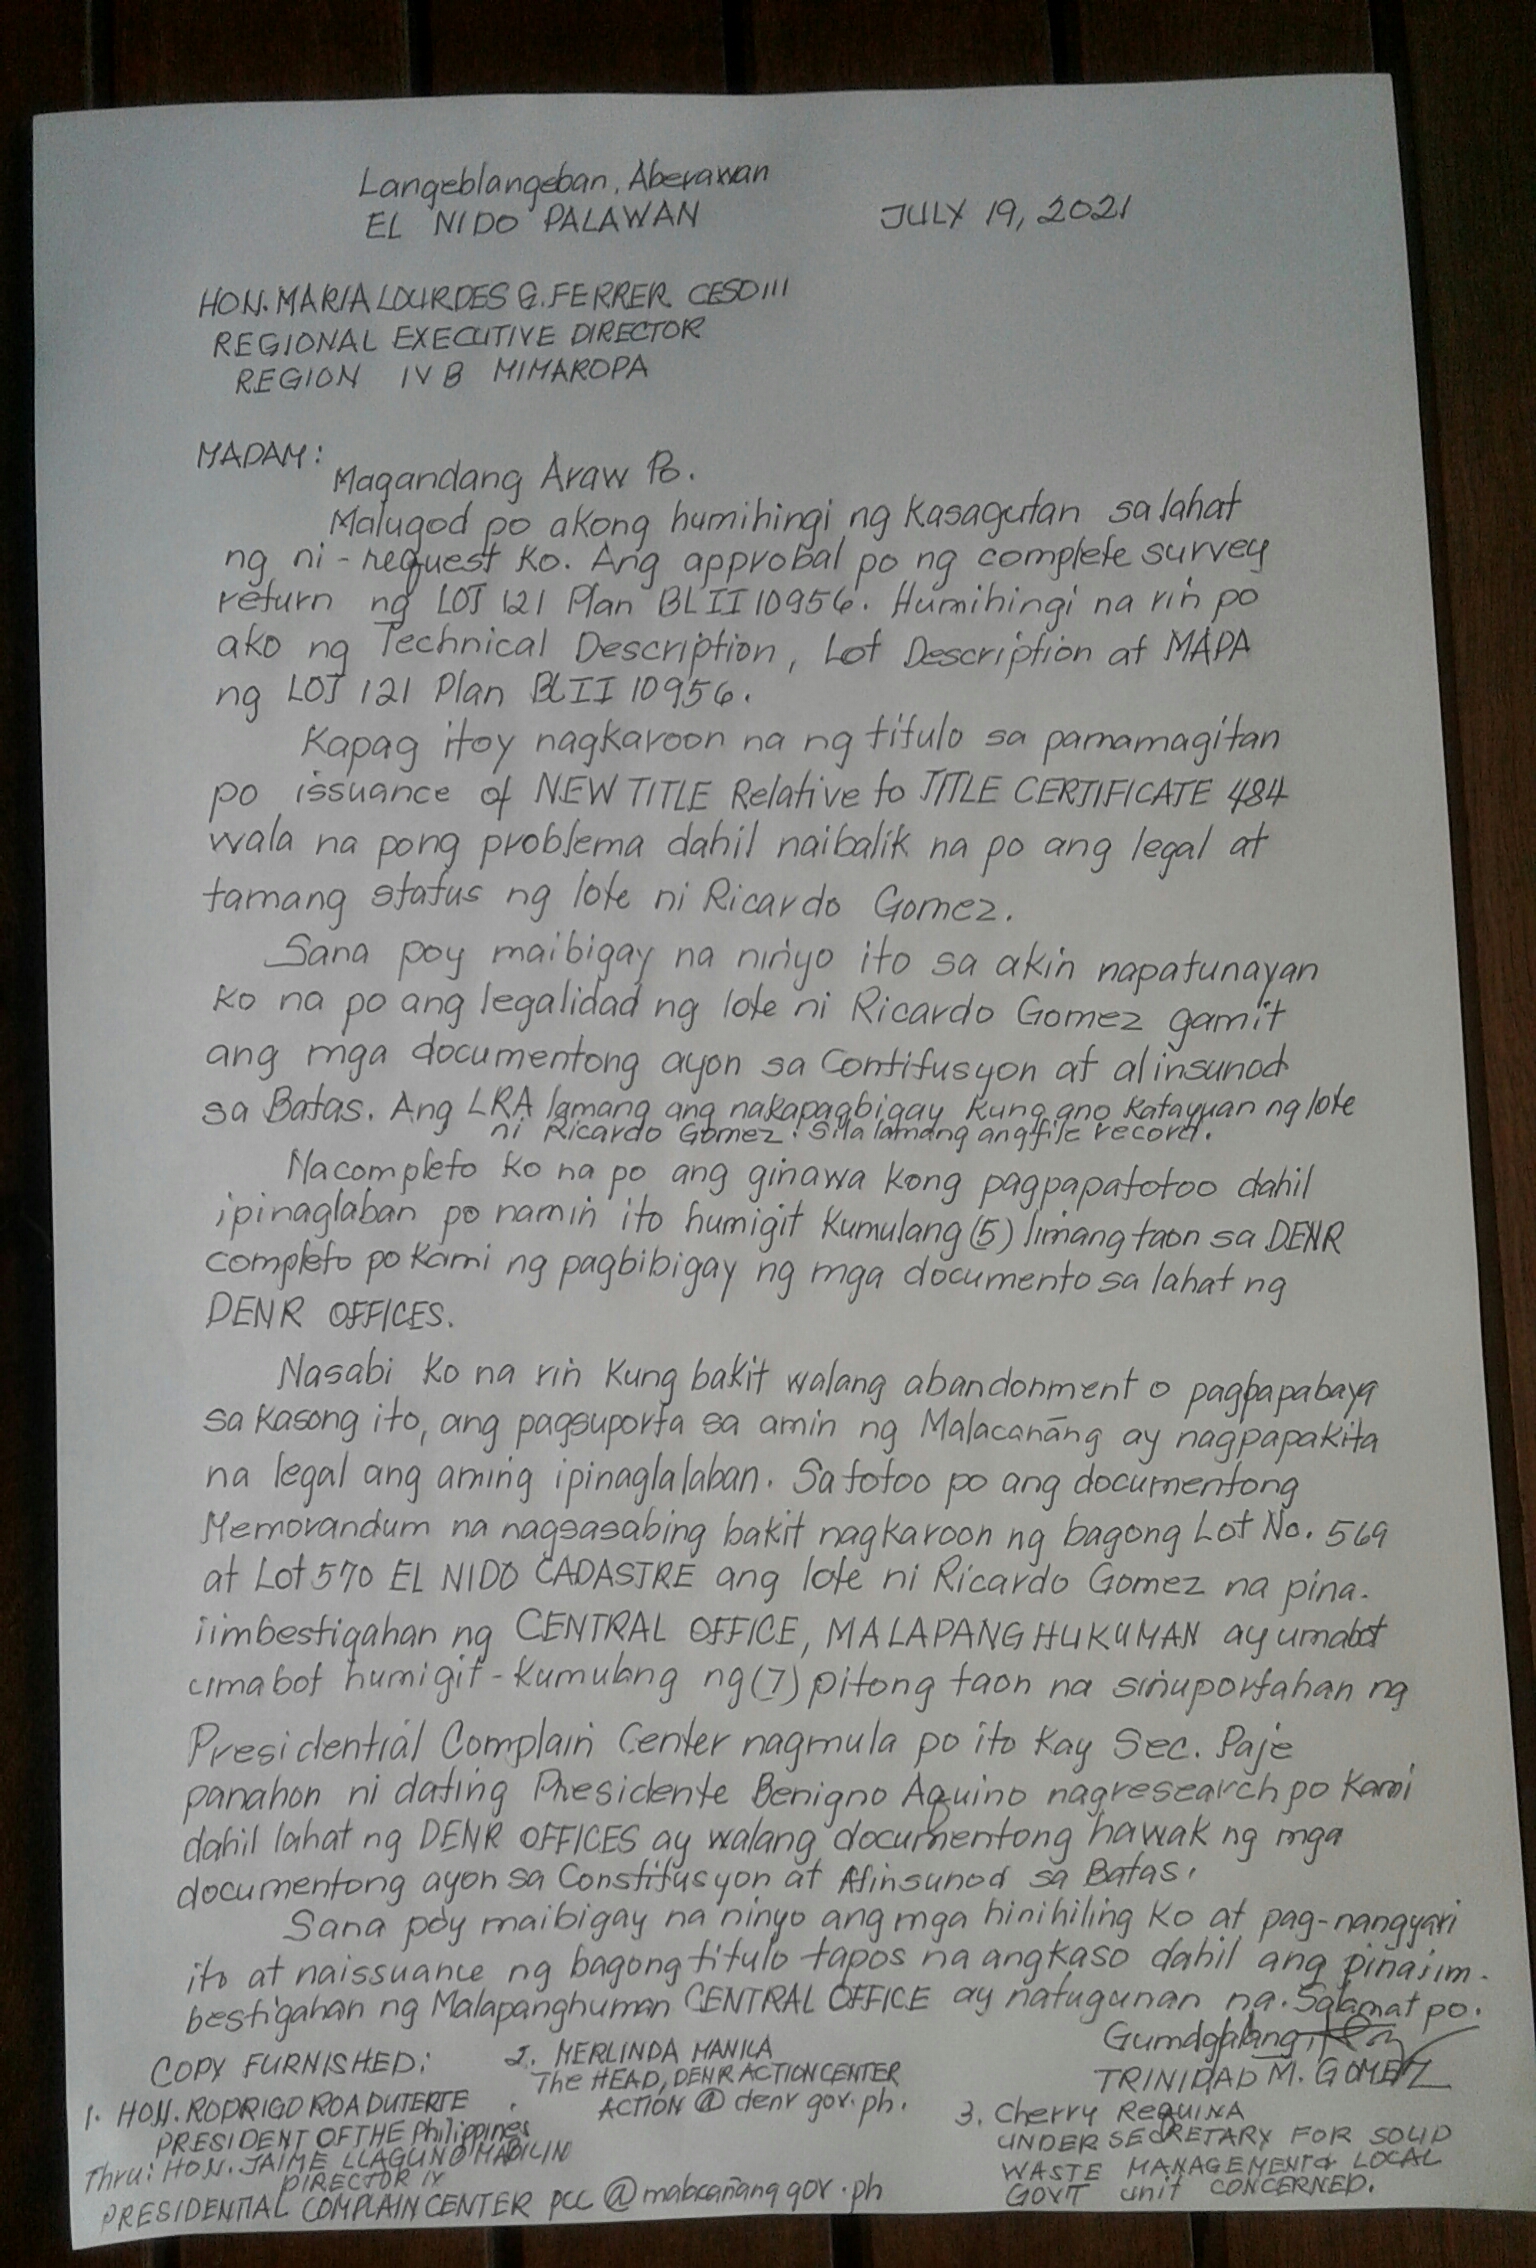 Langeblangeban, Aberawan
EL NIDO PALAWAN
JULY 19, 2021
HON. MARIA LOURDES G. FERRER CESO III
REGIONAL EXECUTIVE DIRECTOR
REGION IV B MIMAROPA
MADAM:
Magandang Araw Po.
Malugod po akong humihingi ng kasagutan sa lahat
ng ni-request ko. Ang approbal po ng complete survey
return ng LOT 121 Plan BLII 10956. Humihingi na rin po
ako ng Technical Description, Lot Description at MAPA
ng LOT 121 Plan BLII 10956.
Kapag itoy nagkaroon na ng titulo sa pamamagitan
po issuance of NEW TITLE Relative to TITLE CERTIFICATE 484
wala na pong problema dahil naibalik na po ang legal at
tamang status ng lote ni Ricardo Gomez.
Sana poy maibigay na ninyo ito sa akin napatunayan
ko na po ang legalidad ng lote ni Ricardo Gomez gamit
ang mga documentong ayon sa Contitusyon at alinsunod
sa Batas. Ang LRA lamang ang nakapagbigay kung ano katayuan ng lote
ni Ricardo Gomez. Sila lamang ang file record.
Nacompleto ko na po ang ginawa kong pagpapatotoo dahil
ipinaglaban po namin ito humigit kumulang (5) limang taon sa DENR
completo po kami ng pagbibigay ng mga documento sa lahat ng
DENR OFFICES.
Nasabi ko na rin kung bakit walang abandonment o pagpapabaya
sa kasong ito, ang pagsuporta sa amin ng Malacanāng ay nagpapakita
na legal ang aming ipinaglalaban. Sa totoo po ang documentong
Memorandum na nagsasabing bakit nagkaroon ng bagong Lot No. 569
at Lot 570 EL NIDO CADASTRE ang lote ni Ricardo Gomez na pina-
iimbestigahan ng CENTRAL OFFICE, MALAPANG HUKUMAN ay umabot
umabot humigit-kumulang ng (7) pitong taon na sinuportahan ng
Presidential Complain Center nagmula po ito kay Sec. Paje
panahon ni dating Presidente Benigno Aquino nagresearch po kami
dahil lahat ng DENR OFFICES ay walang documentong hawak ng mga
documentong ayon sa Constitusyon at Alinsunod sa Batas.
Sana poy maibigay na ninyo ang mga hinihiling ko at pag-nangyari
ito at naissuance ng bagong titulo tapos na ang kaso dahil ang pinaiim-
bestigahan ng Malapanghuman CENTRAL OFFICE ay natugunan na. Salamat po.
Gumagalang,
TRINIDAD M. GOMEZ
COPY FURNISHED:
1. HON. RODRIGO ROA DUTERTE
PRESIDENT OF THE Philippines
Thru: HON. JAIME LLAGUNO MABILIN
DIRECTOR IV
PRESIDENTIAL COMPLAIN CENTER pcc @malacañang gov.ph
2. MERLINDA MANILA
The HEAD, DENR ACTION CENTER
ACTION @ denr gov.ph.
3. Cherry ReQUINA
UNDER SECRETARY FOR SOLID
WASTE MANAGEMENT & LOCAL
GOVT unit CONCERNED.